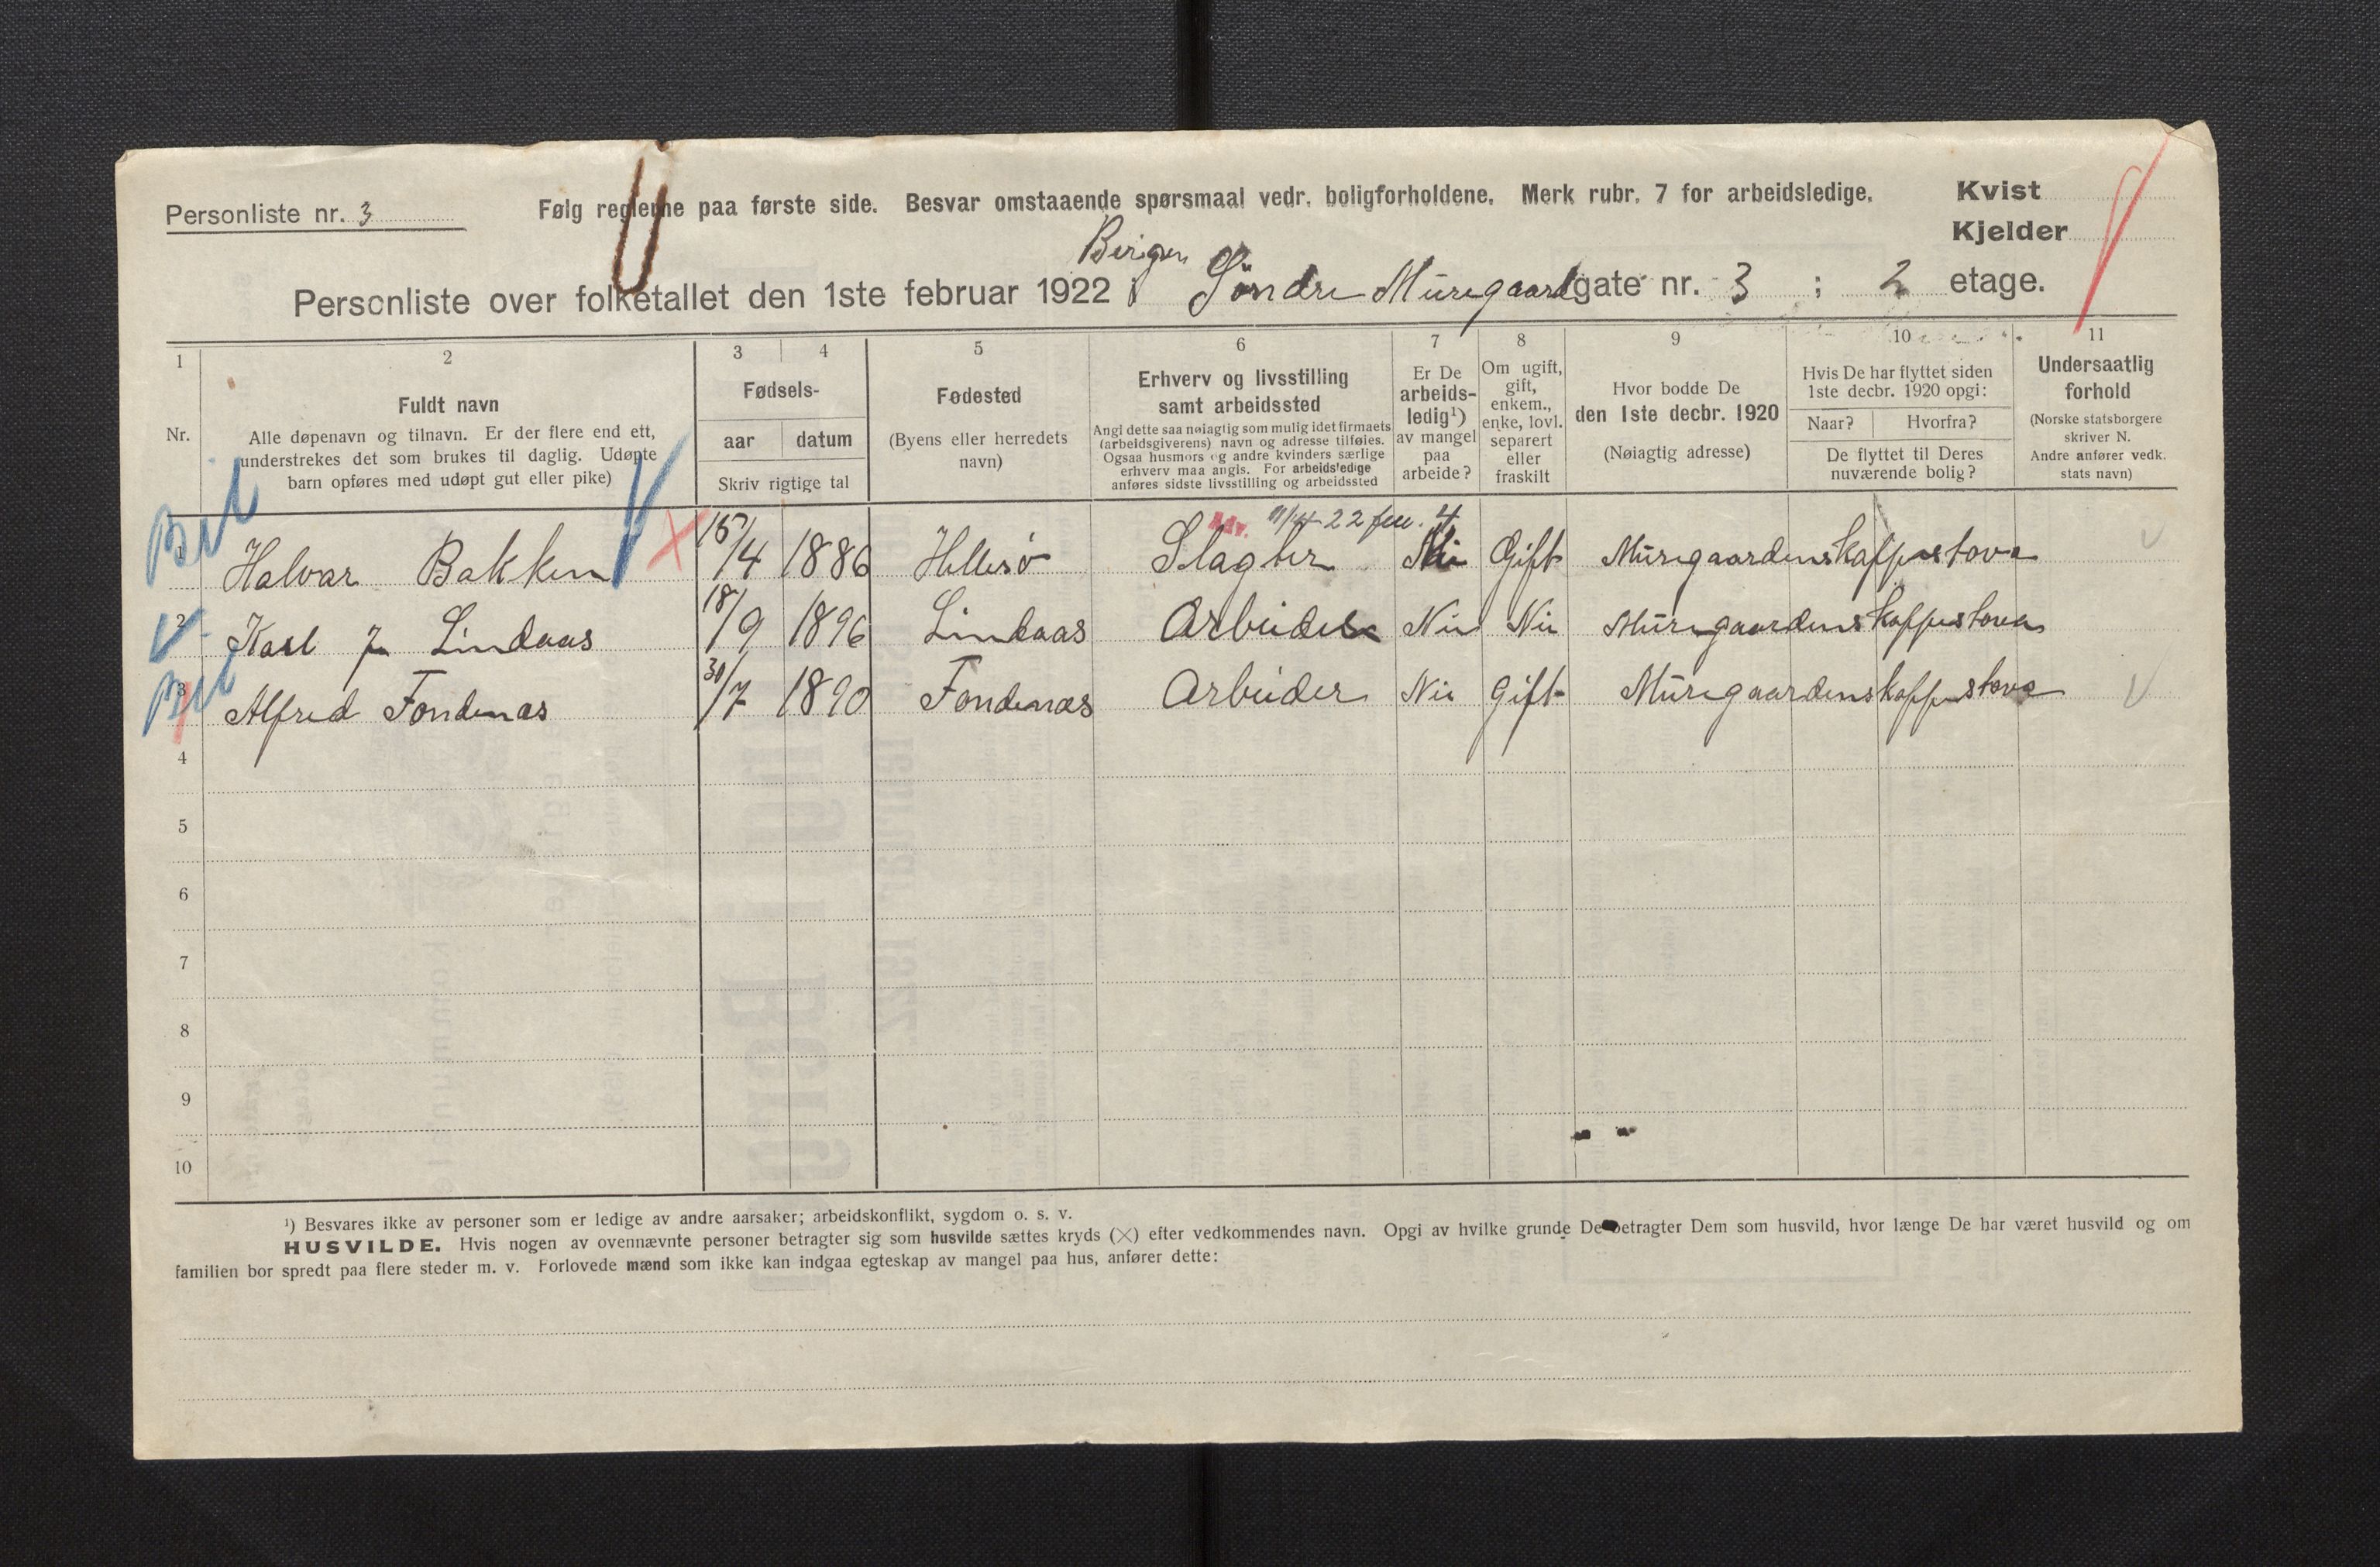 Personliste nr. 3
Følg reglerne paa første side. Besvar omstaaende spørsmaal vedr. boligforholdene. Merk rubr. 7 for arbeidsledige.
Kvist
Kjelder
Bergen
Personliste over folketallet den 1ste februar 1922 i Söndre Müregaardgate nr. 3 ; 2 etage.
1 2 3 4 5 6 7 8 9 10 11
Nr.
Fuldt navn
Alle døpenavn og tilnavn. Er der flere end ett,
understrekes det som brukes til daglig. Udøpte
barn opføres med udøpt gut eller pike)
Fødsels-
aar datum
Skriv rigtige tal
Fødested
(Byens eller herredets
navn)
Erhverv og livsstilling
samt arbeidssted
Angi dette saa nøiagtig som mulig idet firmaets
(arbeidsgiverens) navn og adresse tilføies.
Ogsaa husmors og andre kvinders særlige
erhverv maa angis. For arbeidsledige
anføres sidste livsstilling og arbeidssted
Er De
arbeids-
ledig¹)
av mangel
paa
arbeide?
Om ugift,
gift,
enkem.,
enke, lovl.
separert
eller
fraskilt
Hvor bodde De
den 1ste decbr. 1920
(Nøiagtig adresse)
Hvis De har flyttet siden
1ste decbr. 1920 opgi:
Naar? Hvorfra?
De flyttet til Deres
nuværende bolig?
Undersaatlig
forhold
(Norske statsborgere
skriver N.
Andre anfører vedk.
stats navn)
1 Halvar Bakken 15/4 1886 Hellesö Slagter Nei Gift Müregaardenskaffestova
2 Karl J Lindaas 18/9 1896 Lindaas Arbeider Nei Nei Müregaardenskaffestova
3 Alfred Fondenæs 30/7 1890 Fondenæs Arbeider Nei Gift Müregaardenskaffestova
4
5
6
7
8
9
10
¹) Besvares ikke av personer som er ledige av andre aarsaker; arbeidskonflikt, sygdom o. s. v.
HUSVILDE. Hvis nogen av ovennævnte personer betragter sig som husvilde sættes kryds (×) efter vedkommendes navn. Opgi av hvilke grunde De betragter Dem som husvild, hvor længe De har været husvild og om
familien bor spredt paa flere steder m. v. Forlovede mænd som ikke kan indgaa egteskap av mangel paa hus, anfører dette: